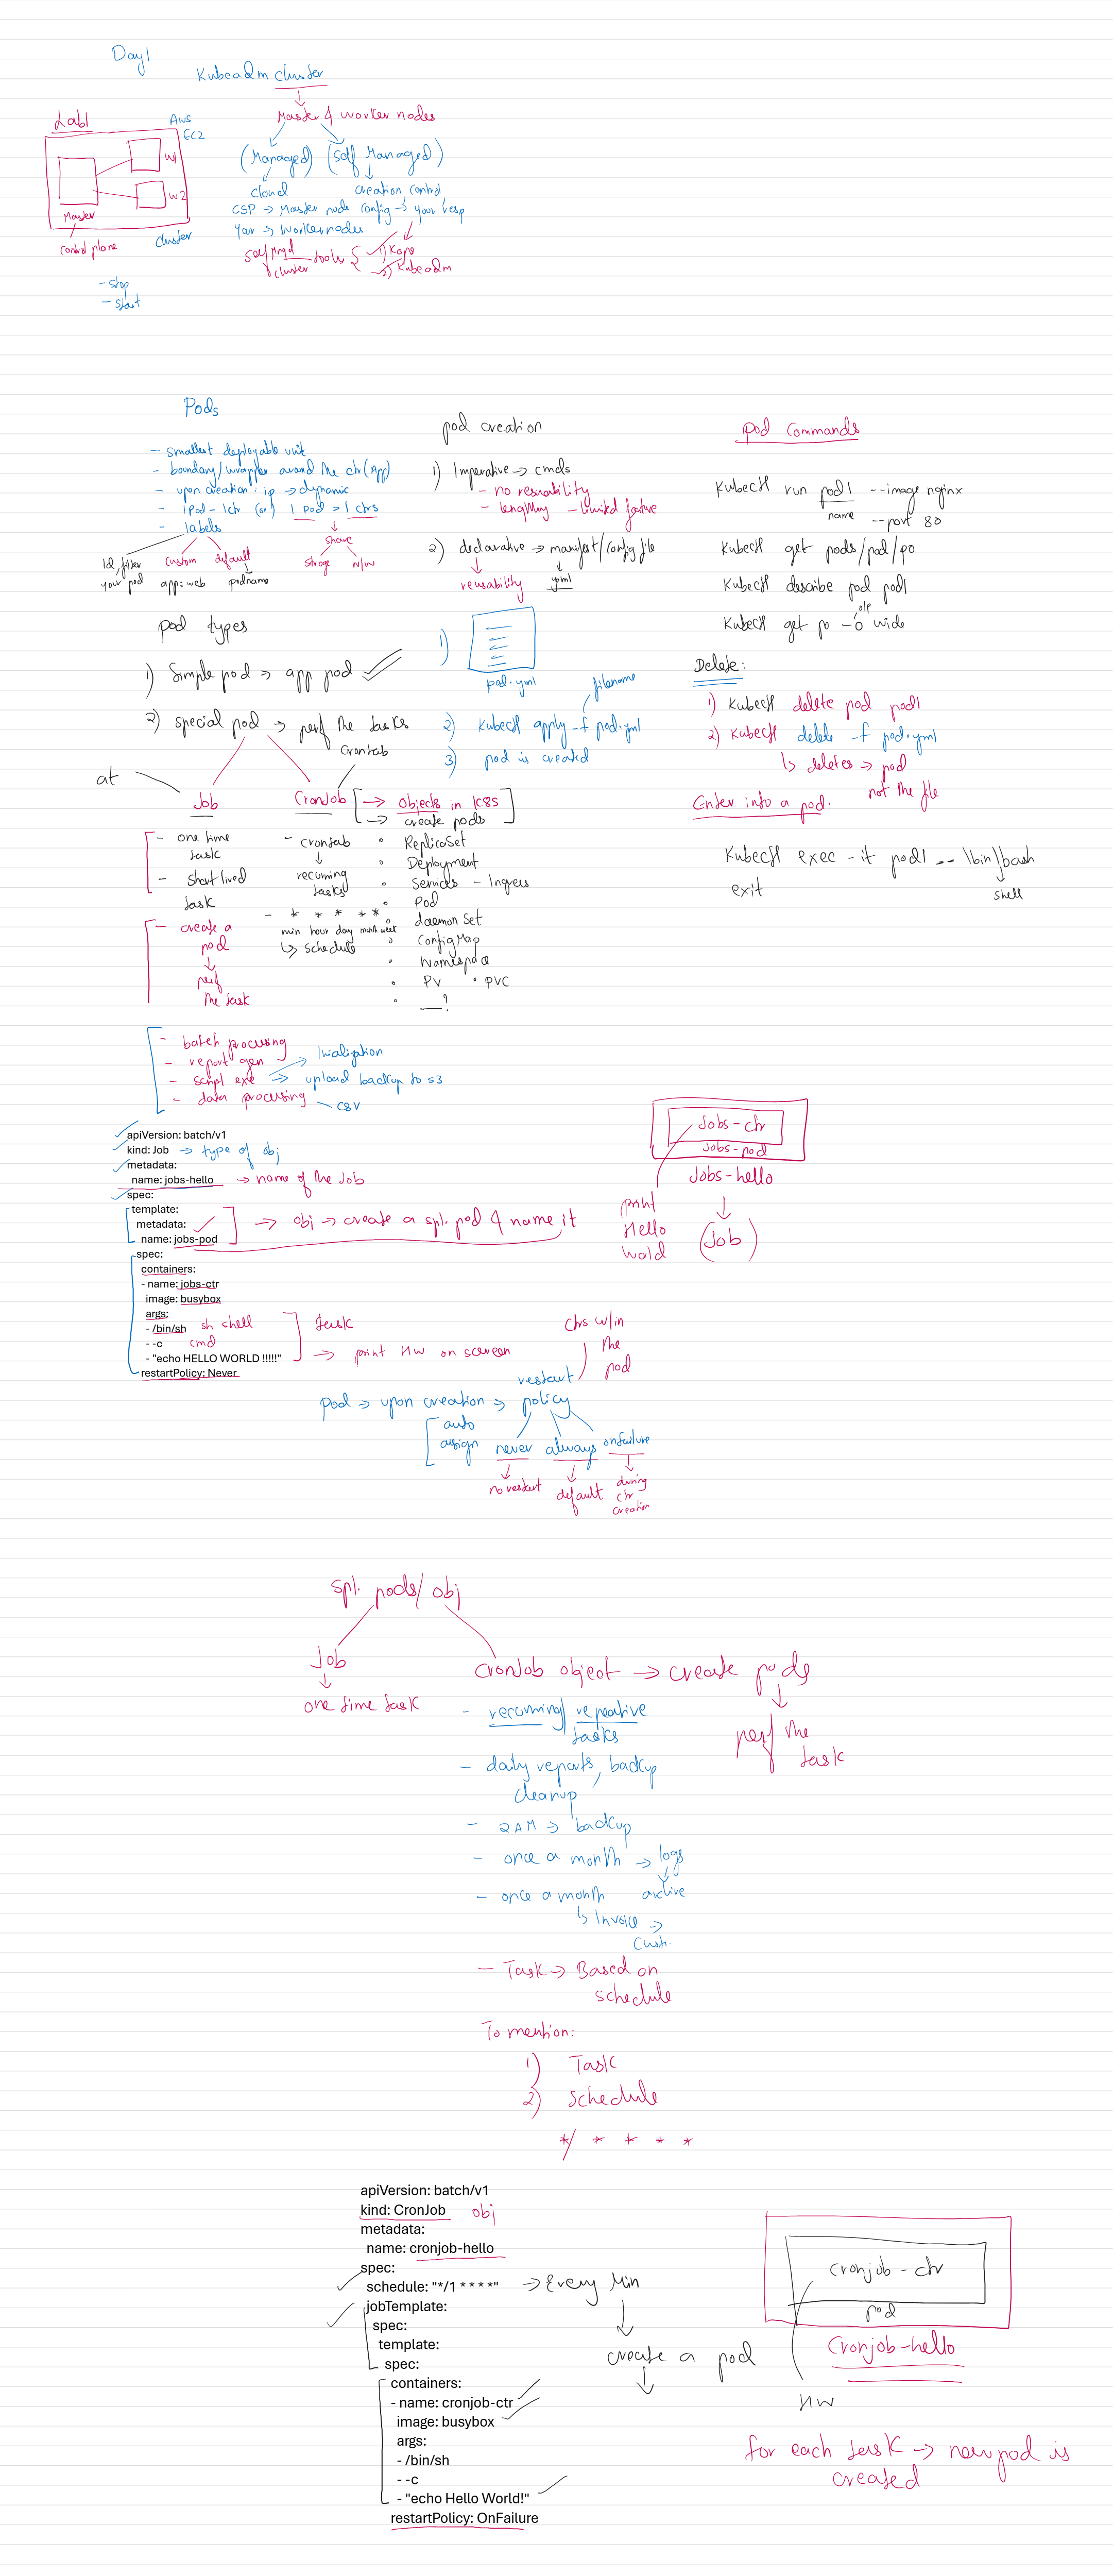 Day1
Kubeadm cluster
Master & worker nodes
(Managed) (Self Managed)
cloud
creation, control
CSP → Master node config → your resp
Your → Worker nodes
Self Mngd cluster tools { 1) Kops
2) Kubeadm
Lab1
AWS
EC2
W1
W2
Master
control plane
Cluster
- stop
- start
Pods
- smallest deployable unit
- boundary/wrapper around the ctr (App)
- upon creation: ip → dynamic
- 1 Pod - 1 ctr (or) 1 pod > 1 ctrs
- labels
share
storage n/w
Id, filter your pod
custom
app: web
default
podname
pod types
1) Simple pod → app pod
2) special pod → perf the tasks
crontab
at
Job
CronJob
[ → objects in K8S ]
→ create pods
- one time task
- short lived task
- create a pod
↓
perf the task
- crontab
↓
recurring tasks
- * * * * *
min hour day month week
↳ schedule
• ReplicaSet
• Deployment
• Services - Ingress
• Pod
• daemon Set
• ConfigMap
• Namespace
• PV • PVC
• ___ ?
pod creation
1) Imperative → cmds
- no reusability
- lengthy - limited feature
2) declarative → manifest/config file
reusability
yaml
1)
pod.yml
filename
2) kubectl apply -f pod.yml
3) pod is created
pod commands
Kubectl run pod1 --image nginx
name
--port 80
Kubectl get pods/pod/po
Kubectl describe pod pod1
o/p
Kubectl get po -o wide
Delete:
1) Kubectl delete pod pod1
2) Kubectl delete -f pod.yml
↳ deletes → pod
not the file
Enter into a pod:
Kubectl exec -it pod1 -- \bin\bash
exit
shell
- batch processing
- report gen
- script exe → Inialization
→ upload backup to s3
- data processing - csv
apiVersion: batch/v1
kind: Job → type of obj
metadata:
name: jobs-hello → name of the Job
spec:
template:
metadata:
name: jobs-pod
→ obj → create a spl. pod & name it
spec:
containers:
- name: jobs-ctr
image: busybox
args:
- /bin/sh sh shell
- -c cmd
- "echo HELLO WORLD !!!!!"
restartPolicy: Never
task
→ print HW on screen
Jobs-ctr
Jobs-pod
Jobs-hello
↓
(Job)
print
Hello
World
ctrs w/in
the
pod
restart
pod → upon creation → policy
auto assign
never always onfailure
no restart
default
during
ctr
creation
spl. pods/obj
Job
↓
one time task
CronJob object → create pods
↓
perf the task
- recurring/repeative tasks
- daily reports, backup
cleanup
- 2AM → backup
- once a month → logs
archive
- once a month
↳ Invoice →
Cust.
- Task → Based on schedule
To mention:
1) Task
2) schedule
*/ * * * *
apiVersion: batch/v1
kind: CronJob obj
metadata:
name: cronjob-hello
spec:
schedule: "*/1 * * * *" → Every Min
jobTemplate:
spec:
template:
spec:
containers:
- name: cronjob-ctr
image: busybox
args:
- /bin/sh
- -c
- "echo Hello World!"
restartPolicy: OnFailure
create a pod
cronjob-ctr
pod
Cronjob-hello
HW
for each task → new pod is
created